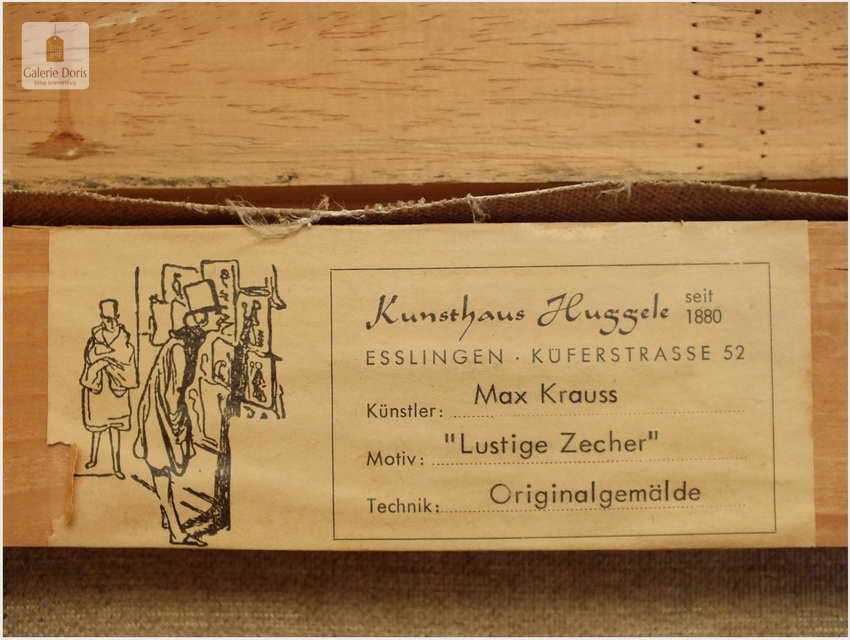 Galerie Doris
Kunsthaus Huggele seit 1880
ESSLINGEN · KÜFERSTRASSE 52
Künstler: Max Krauss
Motiv: "Lustige Zecher"
Technik: Originalgemälde